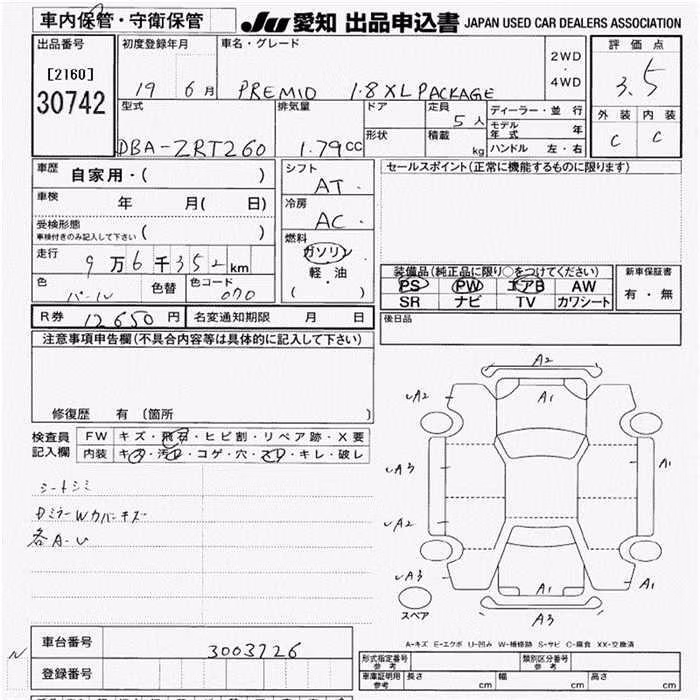 車内保管・守衛保管
JU 愛知 出品申込書 JAPAN USED CAR DEALERS ASSOCIATION
出品番号
[2160]
30742
初度登録年月
19 6月
車名・グレード
PREMIO 1.8 XL PACKAGE
2WD
・
4WD
評価点
3.5
外装 内装
C C
型式
DBA-ZRT260
排気量
1.79cc
ドア
形状
定員
5人
積載
kg
ディーラー・並行
モデル年式 年
ハンドル 左・右
車歴
自家用・( )
車検
年 月( 日)
受検形態
車検付きのみ記入して下さい ( )
走行
9万6千352km
色
パール
色替
色コード
070
シフト
AT
冷房
AC
燃料
ガソリン
軽・油
( )
セールスポイント(正常に機能するものに限ります)
装備品(純正品に限り○をつけてください)
PS PW エアB AW
SR ナビ TV カワシート
新車保証書
有・無
後日品
R券 12650円
名変通知期限 月 日
注意事項申告欄(不具合内容等は具体的に記入して下さい)
修復歴 有 (箇所 )
検査員
記入欄
FW キズ・飛石・ヒビ割・リペア跡・X要
内装 キズ・汚レ・コゲ・穴・スレ・キレ・破レ
シートシミ
DミラーWカバーキズ
各A-U
A2
A2
A1
A3
A1
A2
A3
A1
A1
A3
スペア
A-キズ E-エクボ U-凹み W-補修跡 S-サビ C-腐食 XX-交換済
N
車台番号
3003726
登録番号
形式指定番号
参考
類別区分番号
参考
車庫証明用
参考
長さ cm
幅 cm
高さ cm